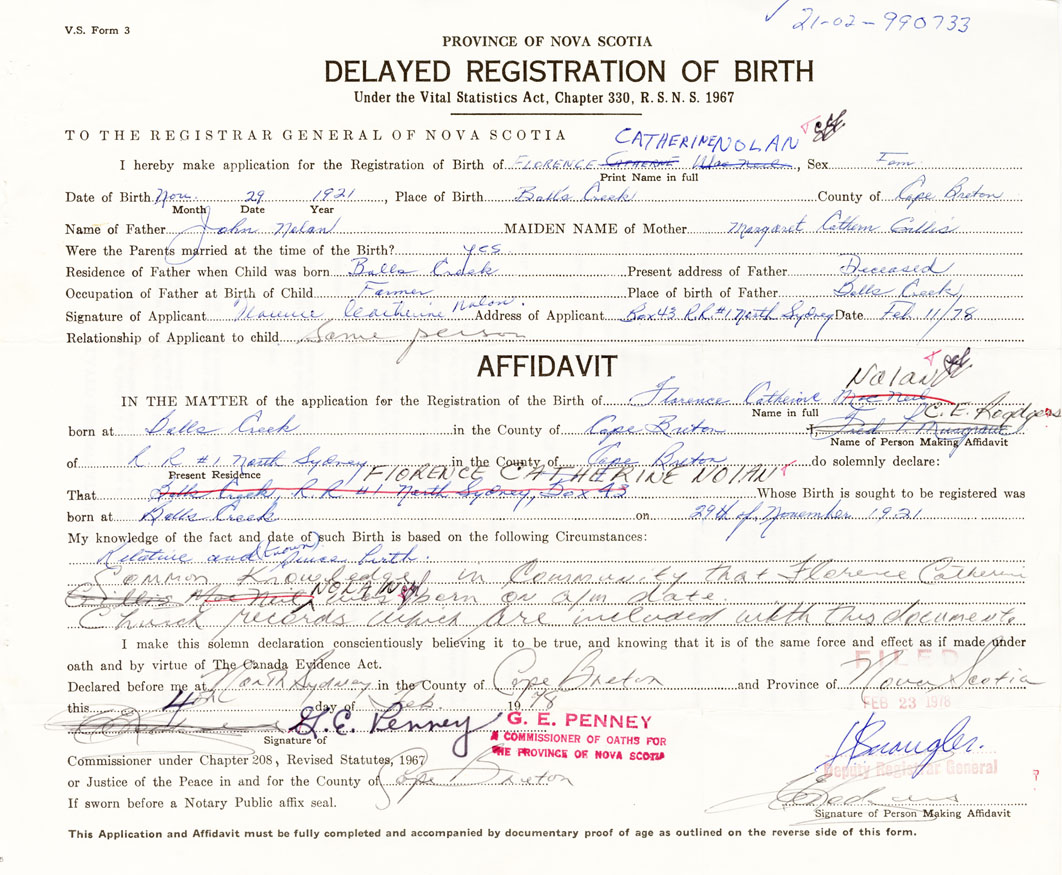 V.S. Form 3
✓ 21-02-990733
PROVINCE OF NOVA SCOTIA
DELAYED REGISTRATION OF BIRTH
Under the Vital Statistics Act, Chapter 330, R. S. N. S. 1967
TO THE REGISTRAR GENERAL OF NOVA SCOTIA
CATHERINE NOLAN
I hereby make application for the Registration of Birth of FLORENCE CATHERINE Mac Neil, Sex Fem
Print Name in full
Date of Birth Nov. 29 1921, Place of Birth Balls Creek County of Cape Breton
Month Date Year
Name of Father John Nolan MAIDEN NAME of Mother Margaret Cathern Gillis
Were the Parents married at the time of the Birth? yes
Residence of Father when Child was born Balls Creek Present address of Father Deceased
Occupation of Father at Birth of Child Farmer Place of birth of Father Balls Creek
Signature of Applicant Florence Catherine Nolan. Address of Applicant Box 43 R R #1 North Sydney Date Feb 11/78
Relationship of Applicant to child Same person
AFFIDAVIT
NOLAN
IN THE MATTER of the application for the Registration of the Birth of Florence Catherine Mac Neil
Name in full C. E. Roedgers
born at Balls Creek in the County of Cape Breton I, Fred T Musgrave
Name of Person Making Affidavit
of R. R #1 North Sydney in the County of Cape Breton do solemnly declare:
Present Residence FLORENCE CATHERINE NOLAN
That Balls Creek, R. R #1 North Sydney, Box 43 Whose Birth is sought to be registered was
born at Balls Creek on 29th of November 1921
My knowledge of the fact and date of such Birth is based on the following Circumstances:
Relative and (known) since birth.
Common Knowledge in Community that Florence Catherine
Gillis Mac Neil NOLAN was born on a/m date.
Church records which are included with this document
I make this solemn declaration conscientiously believing it to be true, and knowing that it is of the same force and effect as if made under
oath and by virtue of The Canada Evidence Act.
FILED
Declared before me at North Sydney in the County of Cape Breton and Province of Nova Scotia
this 4th day of Feb 1978
FEB 23 1978
G. E. Penney
G. E. PENNEY
A COMMISSIONER OF OATHS FOR
THE PROVINCE OF NOVA SCOTIA
Signature of
Commissioner under Chapter 208, Revised Statutes, 1967
Deputy Registrar General
or Justice of the Peace in and for the County of Cape Breton
If sworn before a Notary Public affix seal.
Signature of Person Making Affidavit
This Application and Affidavit must be fully completed and accompanied by documentary proof of age as outlined on the reverse side of this form.